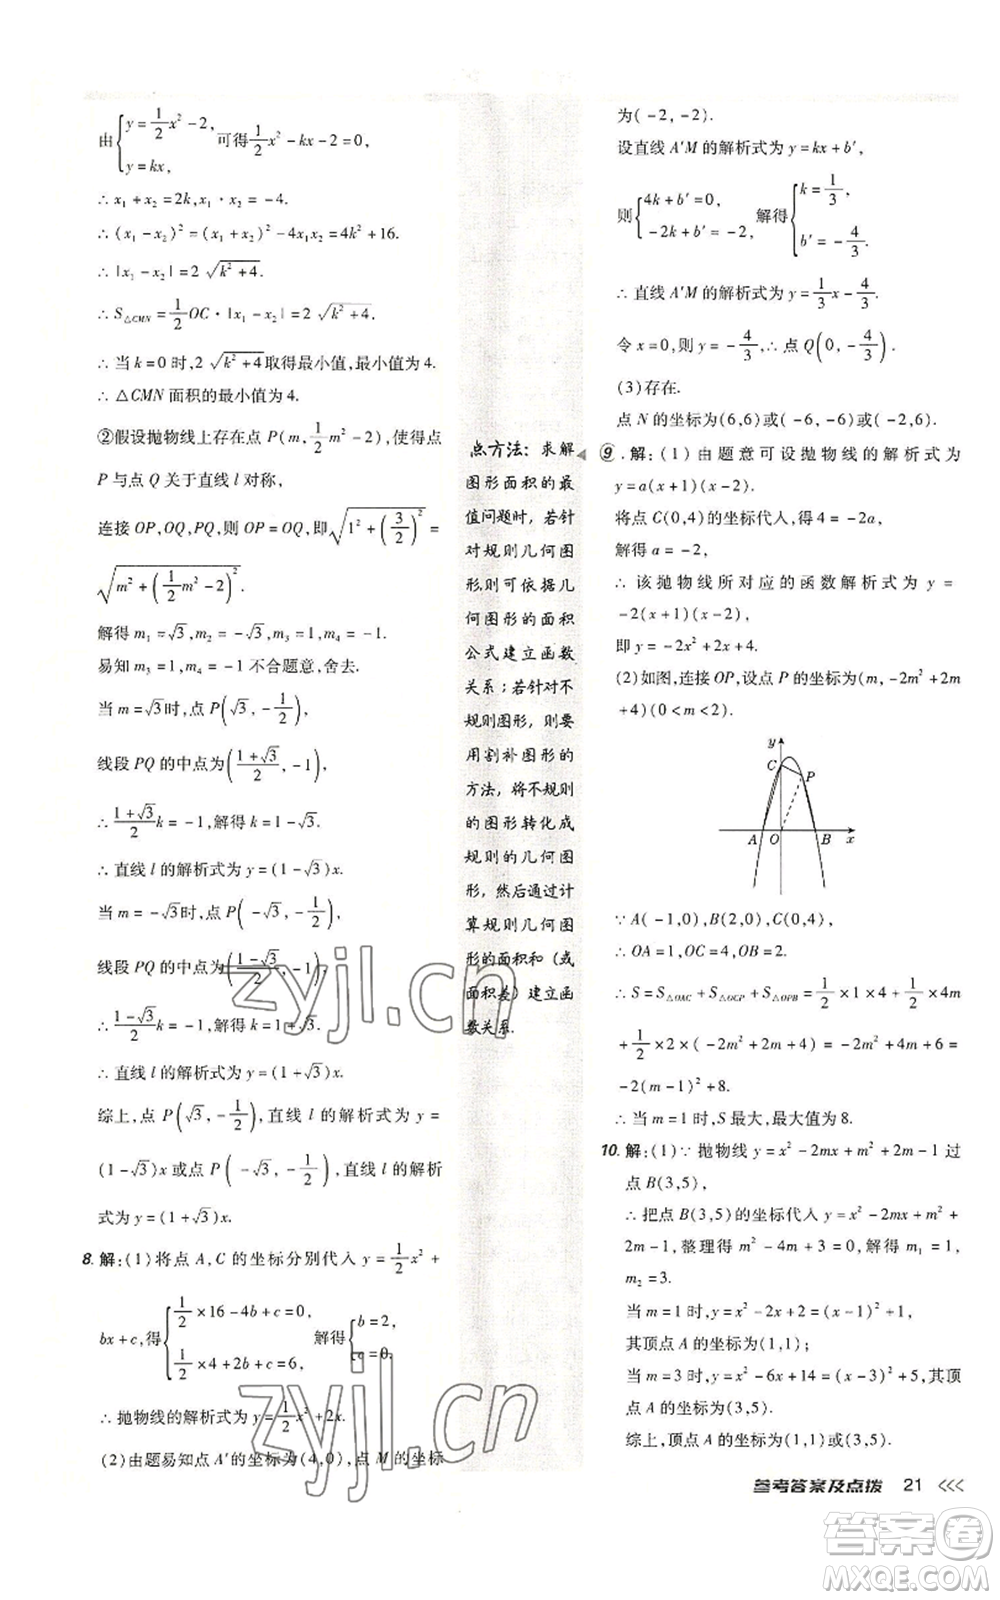 由{y=1/2x²-2, y=kx, 可得1/2x²-kx-2=0,
∴x₁+x₂=2k,x₁·x₂=-4.
∴(x₁-x₂)²=(x₁+x₂)²-4x₁x₂=4k²+16.
∴|x₁-x₂|=2√(k²+4).
∴S△CMN=1/2OC·|x₁-x₂|=2√(k²+4).
∴当k=0时,2√(k²+4)取得最小值,最小值为4.
∴△CMN面积的最小值为4.
②假设抛物线上存在点P(m,1/2m²-2),使得点
P与点Q关于直线l对称,
连接OP,OQ,PQ,则OP=OQ,即√(1²+(3/2)²)=
√(m²+(1/2m²-2)²).
解得m₁=√3,m₂=-√3,m₃=1,m₄=-1.
易知m₃=1,m₄=-1不合题意,舍去.
当m=√3时,点P(√3,-1/2),
线段PQ的中点为((1+√3)/2,-1),
∴(1+√3)/2k=-1,解得k=1-√3.
∴直线l的解析式为y=(1-√3)x.
当m=-√3时,点P(-√3,-1/2),
线段PQ的中点为((1-√3)/2,-1),
∴(1-√3)/2k=-1,解得k=1+√3.
∴直线l的解析式为y=(1+√3)x.
综上,点P(√3,-1/2),直线l的解析式为y=
(1-√3)x或点P(-√3,-1/2),直线l的解析
式为y=(1+√3)x.
8.解:(1)将点A,C的坐标分别代入y=1/2x²+
bx+c,得{1/2×16-4b+c=0, 1/2×4+2b+c=6, 解得{b=2, c=0.
∴抛物线的解析式为y=1/2x²+2x.
(2)由题易知点A′的坐标为(4,0),点M的坐标
点方法:求解
图形面积的最
值问题时,若针
对规则几何图
形,则可依据几
何图形的面积
公式建立函数
关系;若针对不
规则图形,则要
用割补图形的
方法,将不规则
的图形转化成
规则的几何图
形,然后通过计
算规则几何图
形的面积和(或
面积差)建立函
数关系.
为(-2,-2).
设直线A′M的解析式为y=kx+b′,
则{4k+b′=0, -2k+b′=-2, 解得{k=1/3, b′=-4/3.
∴直线A′M的解析式为y=1/3x-4/3.
令x=0,则y=-4/3,∴点Q(0,-4/3).
(3)存在.
点N的坐标为(6,6)或(-6,-6)或(-2,6).
9.解:(1)由题意可设抛物线的解析式为
y=a(x+1)(x-2).
将点C(0,4)的坐标代入,得4=-2a,
解得a=-2.
∴该抛物线所对应的函数解析式为y=
-2(x+1)(x-2),
即y=-2x²+2x+4.
(2)如图,连接OP,设点P的坐标为(m,-2m²+2m
+4)(0<m<2).
y
C
P
A O B x
∵A(-1,0),B(2,0),C(0,4),
∴OA=1,OC=4,OB=2.
∴S=S△OAC+S△OCP+S△OPB=1/2×1×4+1/2×4m
+1/2×2×(-2m²+2m+4)=-2m²+4m+6=
-2(m-1)²+8.
∴当m=1时,S最大,最大值为8.
10.解:(1)∵抛物线y=x²-2mx+m²+2m-1过
点B(3,5),
∴把点B(3,5)的坐标代入y=x²-2mx+m²+
2m-1,整理得m²-4m+3=0,解得m₁=1,
m₂=3.
当m=1时,y=x²-2x+2=(x-1)²+1,
其顶点A的坐标为(1,1);
当m=3时,y=x²-6x+14=(x-3)²+5,其顶
点A的坐标为(3,5).
综上,顶点A的坐标为(1,1)或(3,5).
参考答案及点拨 21 <<<
zyjl.cn
zyjl.cn
答案卷
MXQE.COM